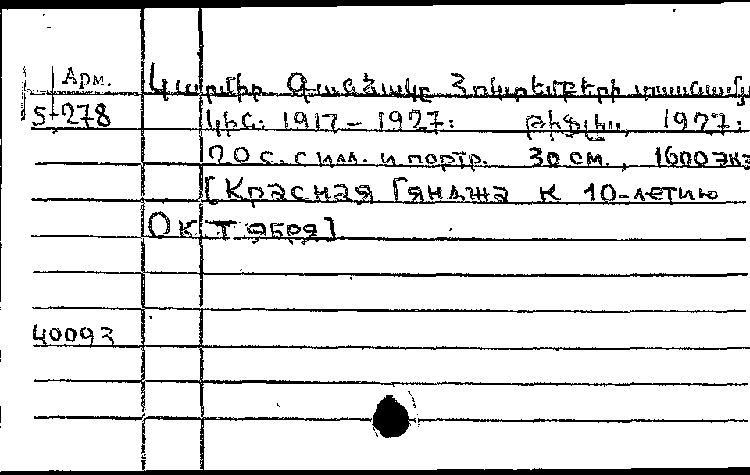 Арм. Կարմիր Գանձակը Հոկտեմբերի տասնամյա
5-278 կին: 1917 – 1927: Թիֆլիս, 1927:
70 с. с илл. и портр. 30 см., 1600 экз
[Красная Гянджа к 10-летию
Октября]
40093